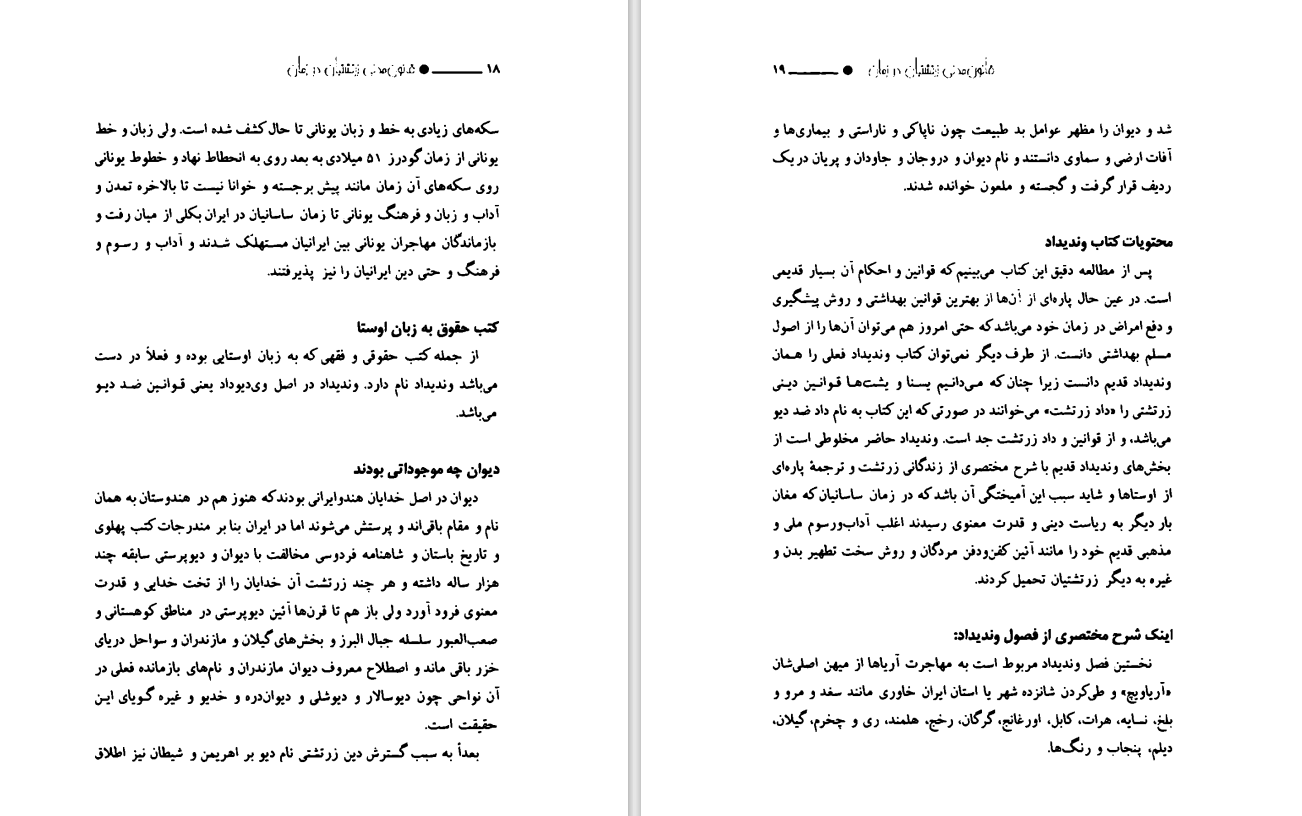 ۱۸ ● قانون مدنی زرتشتیان در زمان
سکه‌های زیادی به خط و زبان یونانی تا حال کشف شده است. ولی زبان و خط
یونانی از زمان گودرز ۵۱ میلادی به بعد روی به انحطاط نهاد و خطوط یونانی
روی سکه‌های آن زمان مانند پیش برجسته و خوانا نیست تا بالاخره تمدن و
آداب و زبان و فرهنگ یونانی تا زمان ساسانیان در ایران بکلی از میان رفت و
بازماندگان مهاجران یونانی بین ایرانیان مستهلک شدند و آداب و رسوم و
فرهنگ و حتی دین ایرانیان را نیز پذیرفتند.
کتب حقوق به زبان اوستا
از جمله کتب حقوقی و فقهی که به زبان اوستایی بوده و فعلاً در دست
می‌باشد وندیداد نام دارد. وندیداد در اصل وی‌دیوداد یعنی قوانین ضد دیو
می‌باشد.
دیوان چه موجوداتی بودند
دیوان در اصل خدایان هندوایرانی بودند که هنوز هم در هندوستان به همان
نام و مقام باقی‌اند و پرستش می‌شوند اما در ایران بنا بر مندرجات کتب پهلوی
و تاریخ باستان و شاهنامه فردوسی مخالفت با دیوان و دیوپرستی سابقه چند
هزار ساله داشته و هر چند زرتشت آن خدایان را از تخت خدایی و قدرت
معنوی فرود آورد ولی باز هم تا قرن‌ها آئین دیوپرستی در مناطق کوهستانی و
صعب‌العبور سلسله جبال البرز و بخش‌های گیلان و مازندران و سواحل دریای
خزر باقی ماند و اصطلاح معروف دیوان مازندران و نام‌های بازمانده فعلی در
آن نواحی چون دیوسالار و دیوشلی و دیوان‌دره و خدیو و غیره گویای این
حقیقت است.
بعداً به سبب گسترش دین زرتشتی نام دیو بر اهریمن و شیطان نیز اطلاق
قانون مدنی زرتشتیان در زمان ● ۱۹
شد و دیوان را مظهر عوامل بد طبیعت چون ناپاکی و ناراستی و بیماری‌ها و
آفات ارضی و سماوی دانستند و نام دیوان و دروجان و جاودان و پریان در یک
ردیف قرار گرفت و گجسته و ملعون خوانده شدند.
محتویات کتاب وندیداد
پس از مطالعه دقیق این کتاب می‌بینیم که قوانین و احکام آن بسیار قدیمی
است. در عین حال پاره‌ای از آن‌ها از بهترین قوانین بهداشتی و روش پیشگیری
و دفع امراض در زمان خود می‌باشد که حتی امروز هم می‌توان آن‌ها را از اصول
مسلم بهداشتی دانست. از طرف دیگر نمی‌توان کتاب وندیداد فعلی را همان
وندیداد قدیم دانست زیرا چنان که می‌دانیم یسنا و یشت‌ها قوانین دینی
زرتشتی را «داد زرتشت» می‌خوانند در صورتی که این کتاب به نام داد ضد دیو
می‌باشد، و از قوانین و داد زرتشت جد است. وندیداد حاضر مخلوطی است از
بخش‌های وندیداد قدیم با شرح مختصری از زندگانی زرتشت و ترجمهٔ پاره‌ای
از اوستاها و شاید سبب این آمیختگی آن باشد که در زمان ساسانیان که مغان
بار دیگر به ریاست دینی و قدرت معنوی رسیدند اغلب آداب‌ورسوم ملی و
مذهبی قدیم خود را مانند آئین کفن‌ودفن مردگان و روش سخت تطهیر بدن و
غیره به دیگر زرتشتیان تحمیل کردند.
اینک شرح مختصری از فصول وندیداد:
نخستین فصل وندیداد مربوط است به مهاجرت آریاها از میهن اصلی‌شان
«آریاویچ» و طی‌کردن شانزده شهر یا استان ایران خاوری مانند سغد و مرو و
بلغ، نسایه، هرات، کابل، اورغانج، گرگان، رخج، هلمند، ری و چخرم، گیلان،
دیلم، پنجاب و رنگ‌ها.